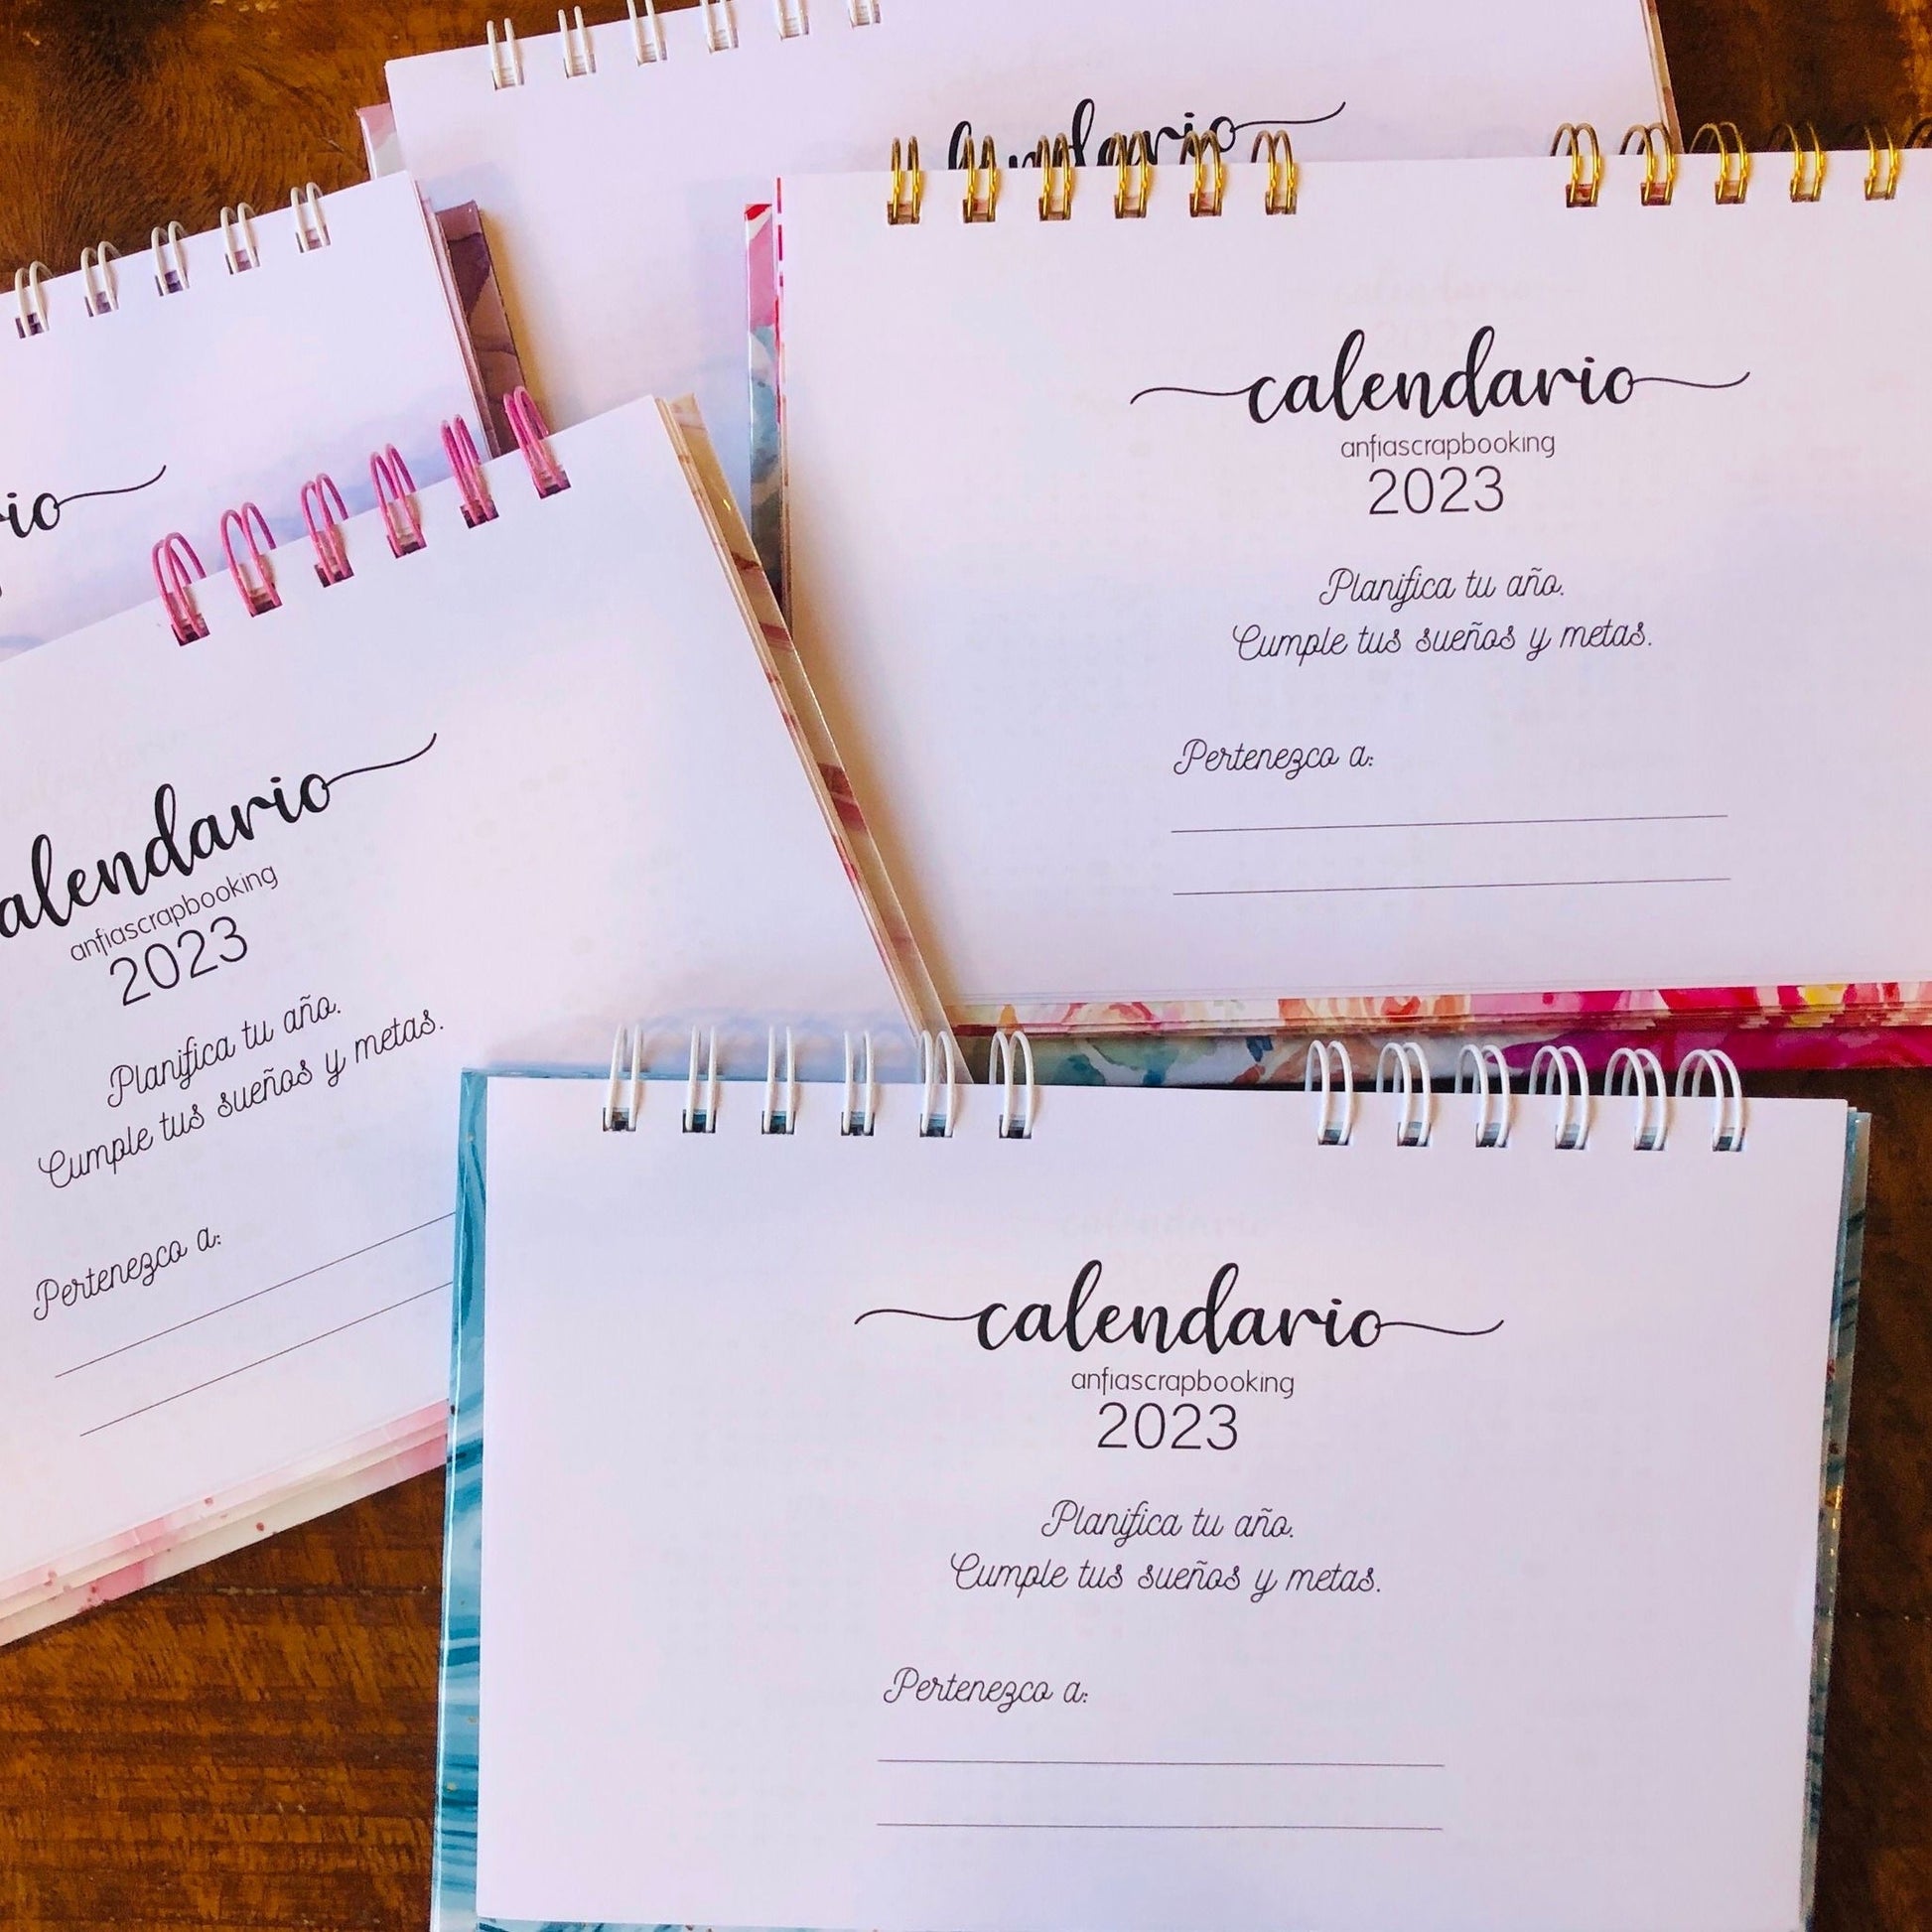 calendario
anfiascrapbooking
2023
Planifica tu año.
Cumple tus sueños y metas.
Pertenezco a:
calendario
anfiascrapbooking
2023
Planifica tu año.
Cumple tus sueños y metas.
Pertenezco a:
calendario
anfiascrapbooking
2023
Planifica tu año.
Cumple tus sueños y metas.
Pertenezco a: